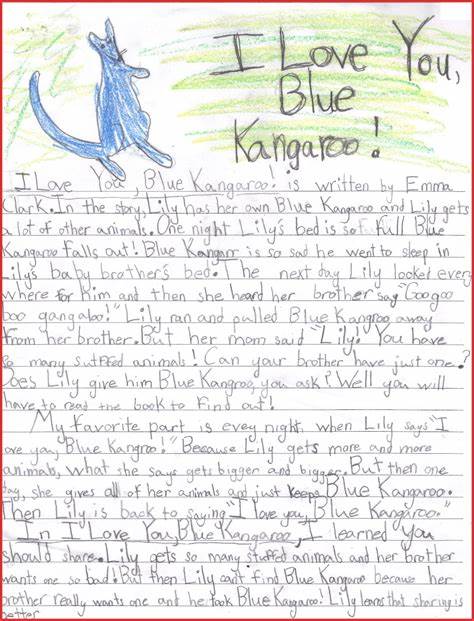 I Love You,
Blue
Kangaroo!
I Love You, Blue Kangaroo! is written by Emma
Clark. In the story, Lily has her own Blue Kangaroo and Lily gets
a lot of other animals. One night Lily's bed is so full Blue
Kangaroo falls out! Blue Kangarr is so sad he went to sleep in
Lily's baby brother's bed. The next day Lily looked every
where for him and then she heard her brother say "Googoo
boo gangaloo!" Lily ran and pulled Blue Kangroo away
from her brother. But her mom said "Lily! You have
so many sutffed animals! Can your brother have just one?
Does Lily give him Blue Kangroo, you ask? Well you will
have to read the book to find out!
My favorite part is evey night, when Lily says "I
love you, Blue Kangroo!" Because Lily gets more and more
animals, what she says gets bigger and bigger. But then one
day, she gives all of her animals and just keeps Blue Kangaroo.
Then Lily is back to saying "I love you, Blue Kangaroo."
In I Love You, Blue Kangaroo, I learned you
should share. Lily gets so many stuffed animals and her brother
wants one so bad! But then Lily can't find Blue Kangaroo because her
brother really wants one and he took Blue Kangaroo! Lily learns that sharing is
better